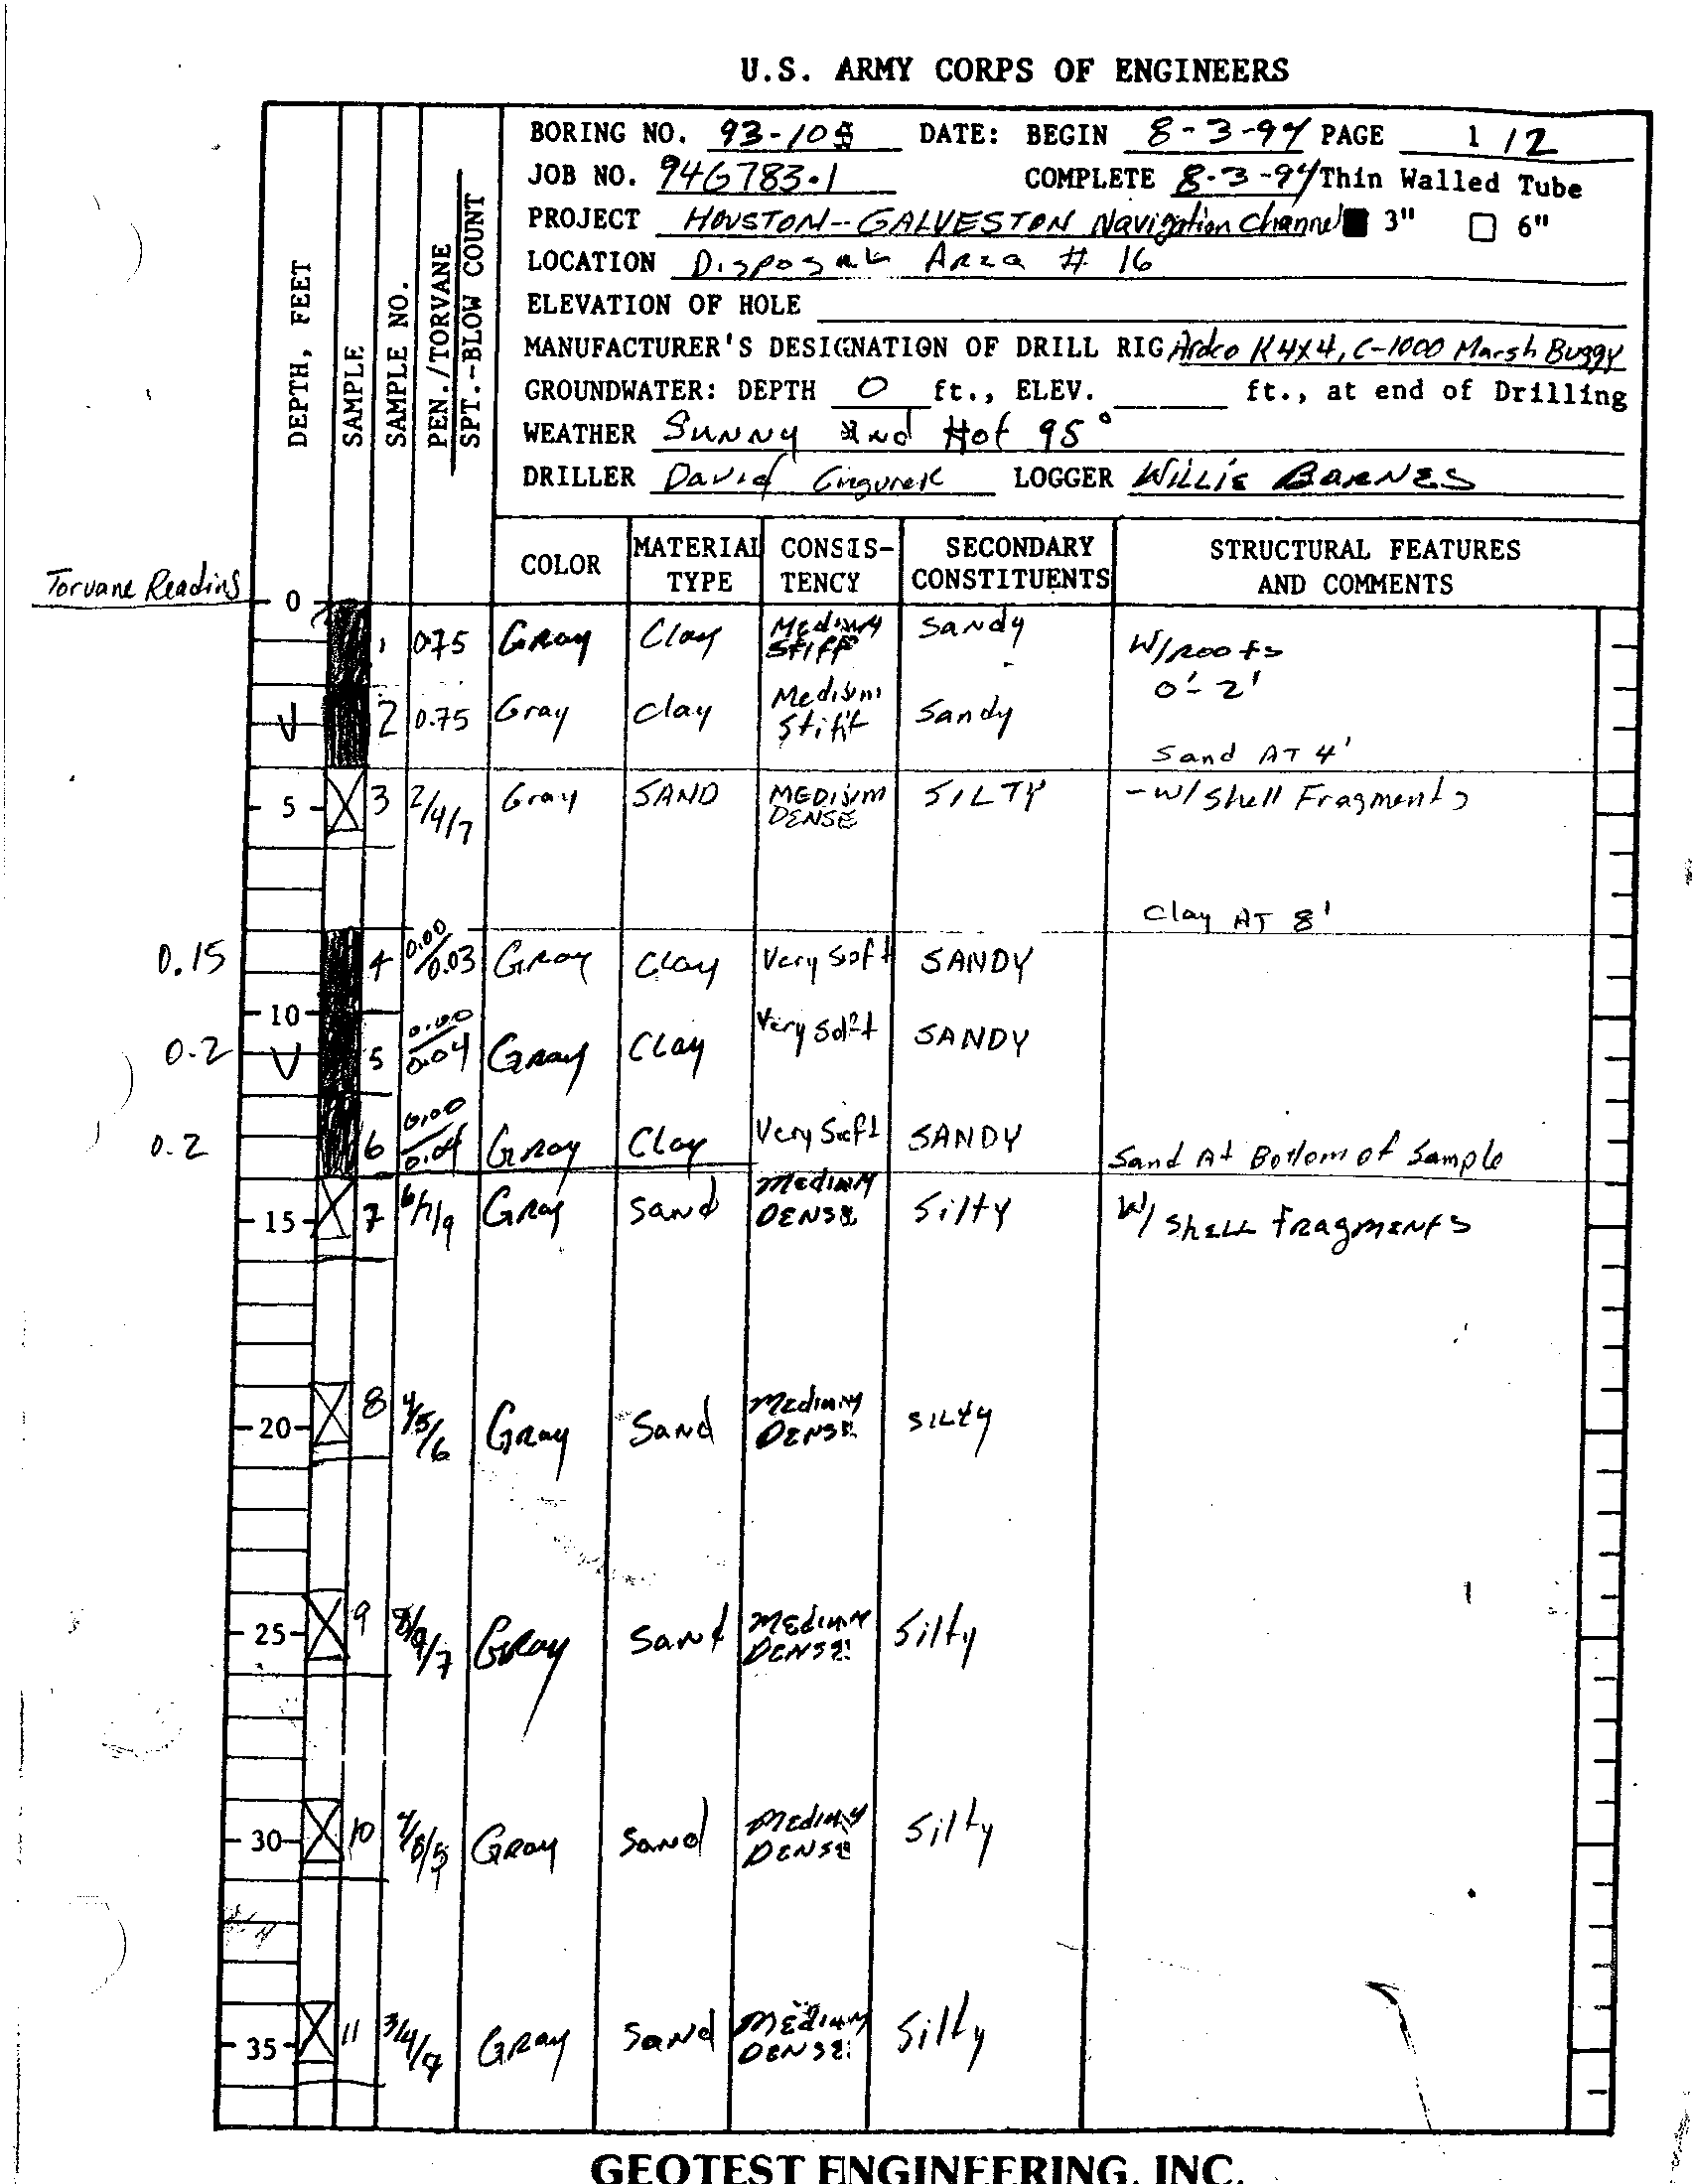 U.S. ARMY CORPS OF ENGINEERS
BORING NO. 93-105 DATE: BEGIN 8-3-94 PAGE 1 / 2
JOB NO. 94G783.1 COMPLETE 8-3-94 Thin Walled Tube
PROJECT HOUSTON--GALVESTON Navigation Channel ■ 3" □ 6"
LOCATION Disposal Area # 16
ELEVATION OF HOLE
MANUFACTURER'S DESIGNATION OF DRILL RIG Ardco K4X4, C-1000 Marsh Buggy
GROUNDWATER: DEPTH 0 ft., ELEV. ft., at end of Drilling
WEATHER Sunny and Hot 95°
DRILLER David LOGGER Willie Barnes
DEPTH, FEET
SAMPLE
SAMPLE NO.
PEN./TORVANE
SPT.-BLOW COUNT
COLOR MATERIAL TYPE CONSIS-TENCY SECONDARY CONSTITUENTS STRUCTURAL FEATURES AND COMMENTS
Torvane Reading 0
1 0.75 Gray Clay Medium Stiff Sandy W/roots
0'-2'
2 0.75 Gray clay Medium Stiff Sandy
Sand AT 4'
5 3 2/4/7 Gray SAND MEDIUM DENSE SILTY -w/ Shell Fragments
Clay AT 8'
0.15 4 0.00/0.03 Gray Clay Very Soft SANDY
10
0.2 5 0.00/0.04 Gray Clay Very Soft SANDY
0.2 6 0.00/0.04 Gray Clay Very Soft SANDY Sand At Bottom of Sample
15 7 6/7/9 Gray Sand Medium DENSE Silty W/ Shell Fragments
20 8 4/5/6 Gray Sand Medium DENSE SILTY
25 9 8/9/7 Gray Sand Medium DENSE Silty
30 10 4/6/5 Gray Sand Medium DENSE Silty
35 11 3/4/7 Gray Sand Medium DENSE Silty
GEOTEST ENGINEERING, INC.